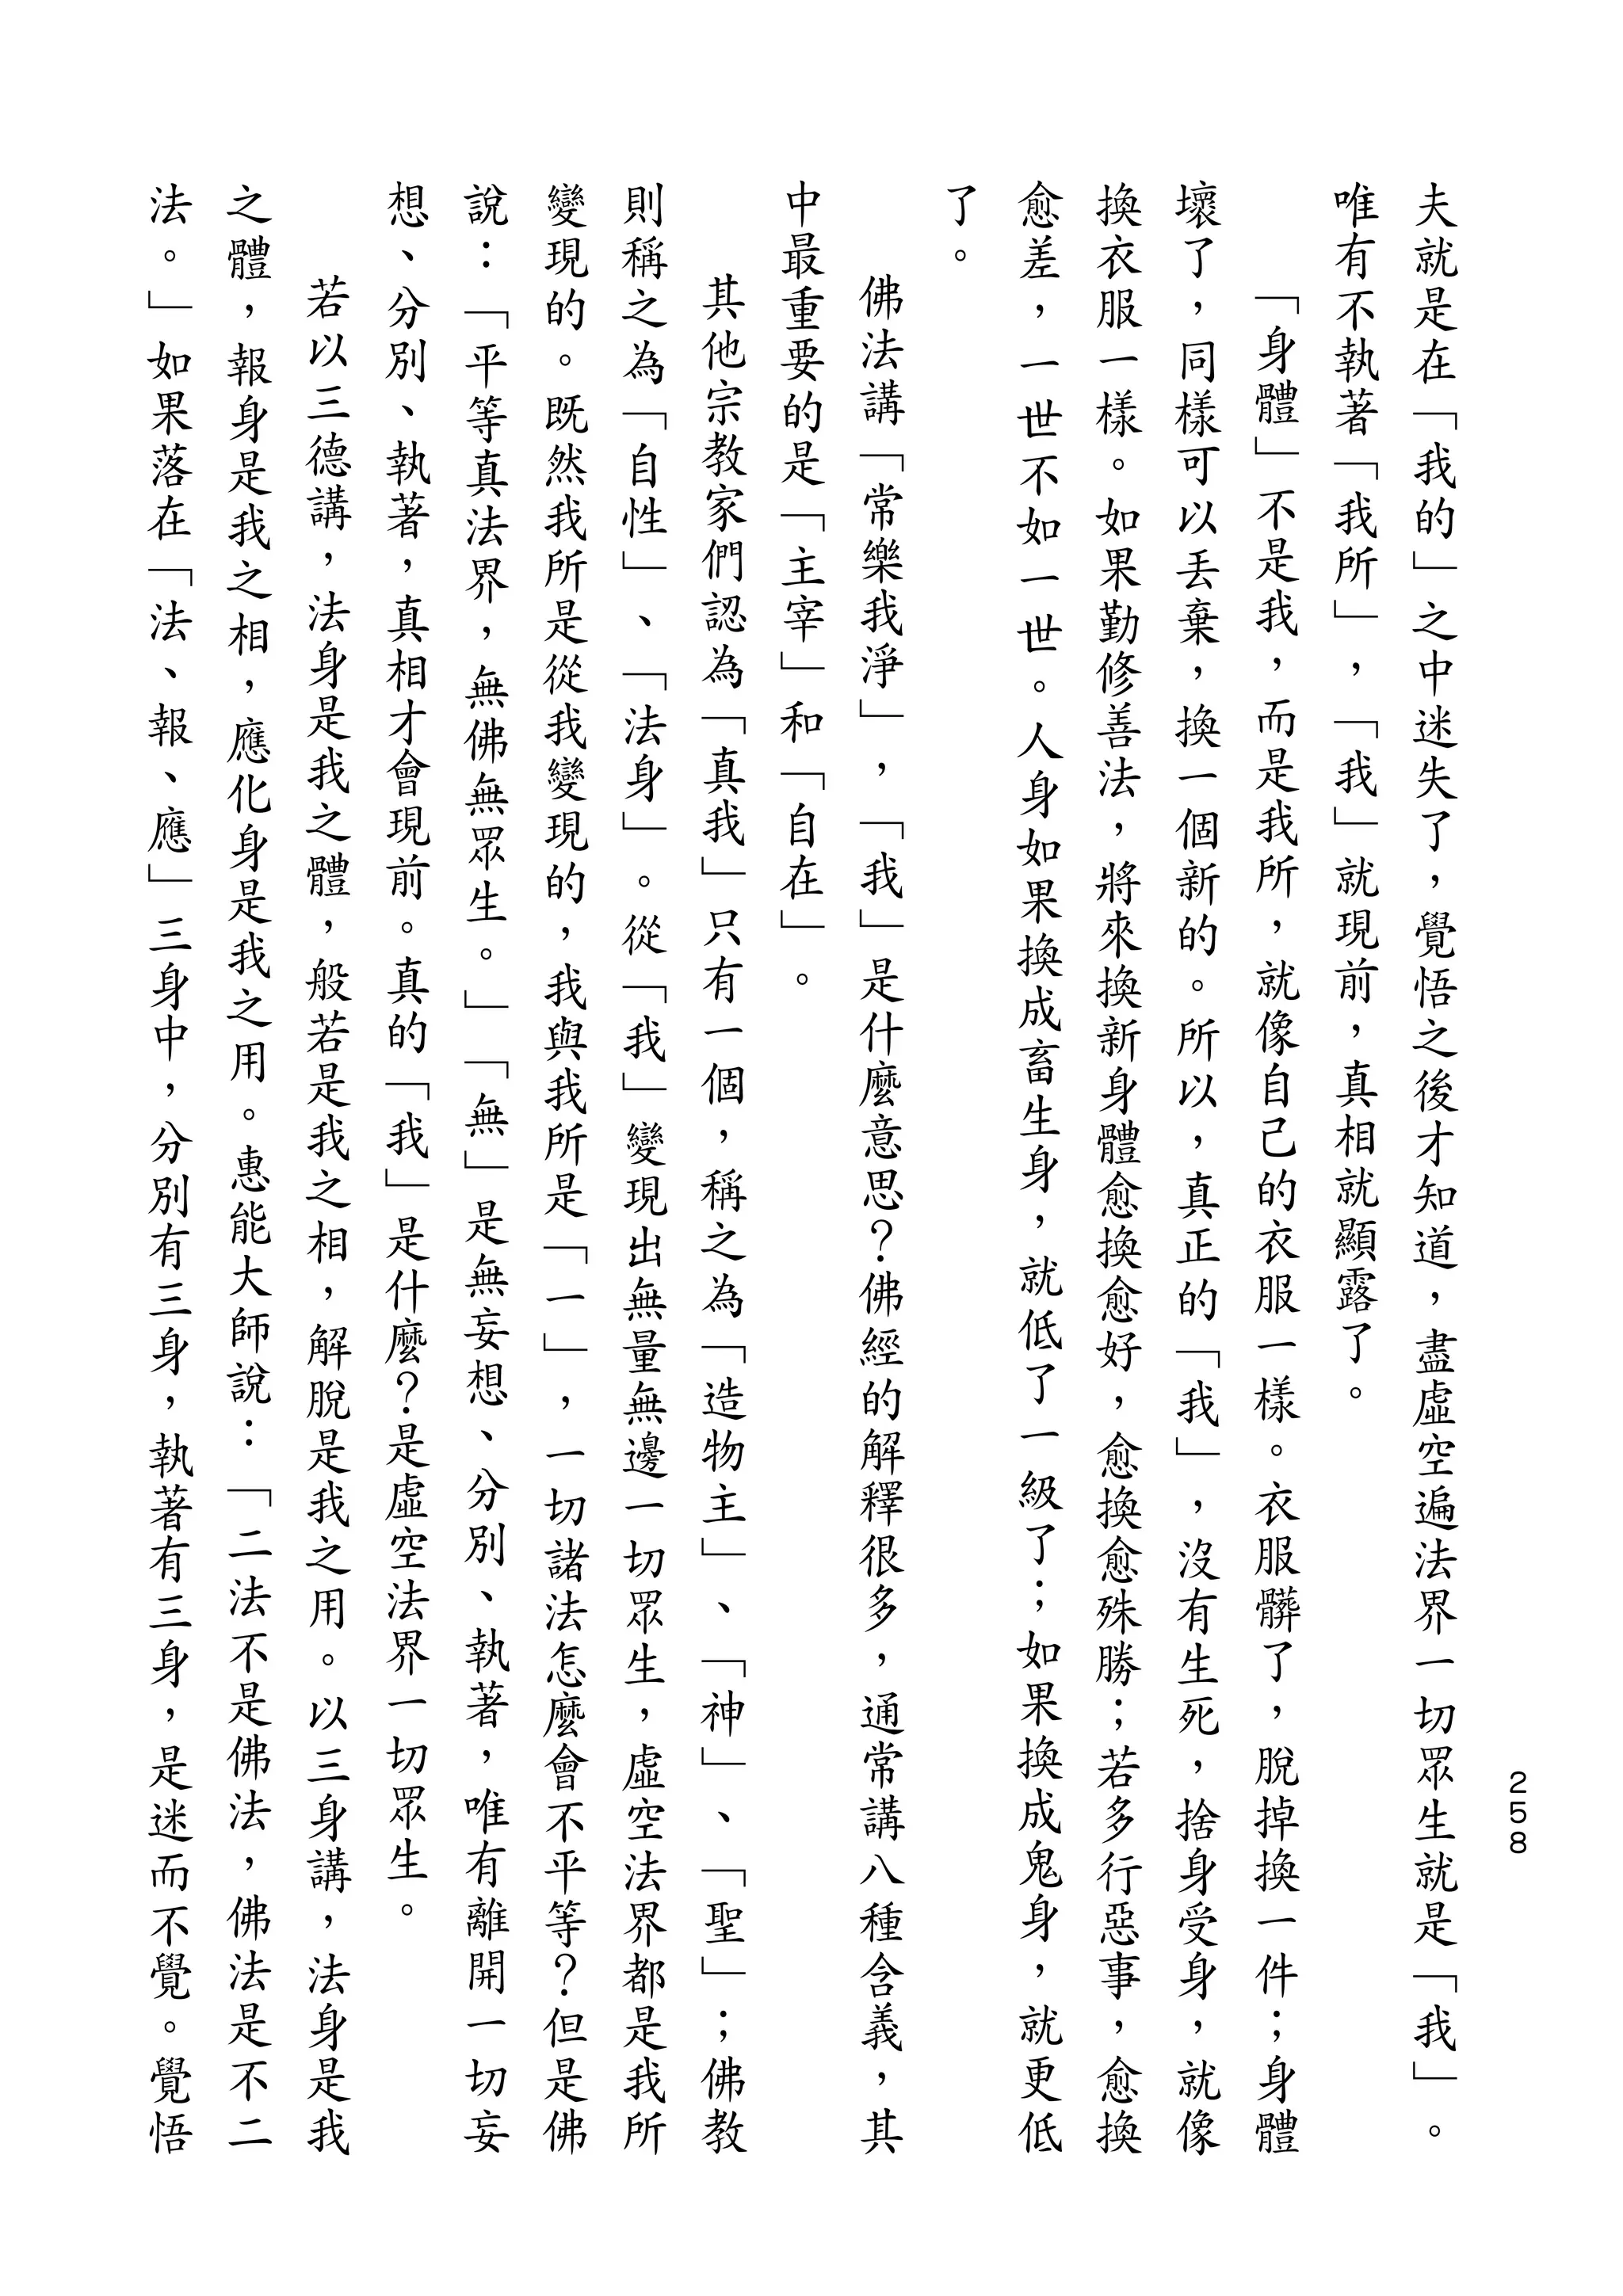 258
夫就是在「我的」之中迷失了，覺悟之後才知道，盡虛空遍法界一切眾生就是「我」。
唯有不執著「我所」，「我」就現前，真相就顯露了。
「身體」不是我，而是我所，就像自己的衣服一樣。衣服髒了，脫掉換一件；身體
壞了，同樣可以丟棄，換一個新的。所以，真正的「我」，沒有生死，捨身受身，就像
換衣服一樣。如果勤修善法，將來換新身體愈換愈好，愈換愈殊勝；若多行惡事，愈換
愈差，一世不如一世。人身如果換成畜生身，就低了一級了；如果換成鬼身，就更低
了。
佛法講「常樂我淨」，「我」是什麼意思？佛經的解釋很多，通常講八種含義，其
中最重要的是「主宰」和「自在」。
其他宗教家們認為「真我」只有一個，稱之為「造物主」、「神」、「聖」；佛教
則稱之為「自性」、「法身」。從「我」變現出無量無邊一切眾生，虛空法界都是我所
變現的。既然我所是從我變現的，我與我所是「一」，一切諸法怎麼會不平等？但是佛
說：「平等真法界，無佛無眾生。」「無」是無妄想、分別、執著，唯有離開一切妄
想、分別、執著，真相才會現前。真的「我」是什麼？是虛空法界一切眾生。
若以三德講，法身是我之體，般若是我之相，解脫是我之用。以三身講，法身是我
之體，報身是我之相，應化身是我之用。惠能大師說：「二法不是佛法，佛法是不二
法。」如果落在「法、報、應」三身中，分別有三身，執著有三身，是迷而不覺。覺悟